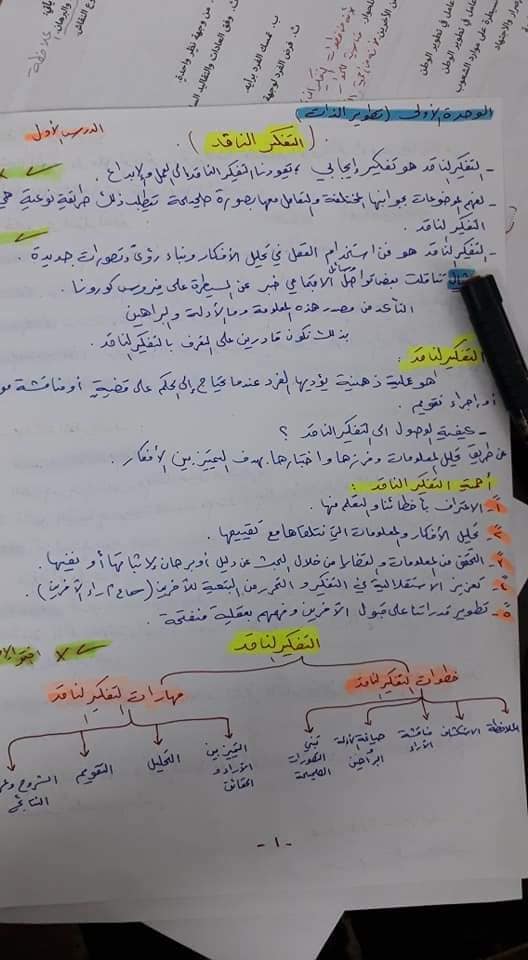 ت. وفق العادات والتقاليد
من وجهة نظر واحدة
ب. تمسك الفرد برأيه.
ث. فرض الفرد
الوحدة الأولى (تطوير الذات)
الدرس الأول
(التفكير الناقد)
- التفكير الناقد هو تفكير إيجابي، يقودنا التفكير الناقد إلى العمل والإبداع.
- لفهم الموضوعات بجوانبها المختلفة والتعامل معها بصورة صحيحة يتطلب ذلك طريقة نوعية هي
التفكير الناقد.
- التفكير الناقد هو فن استخدام العقل في تحليل الأفكار وبناء رؤى وتصورات جديدة.
مثال تناقلت بعض وسائل التواصل الاجتماعي خبر عن السيطرة على فيروس كورونا.
التأكد من مصدر هذه المعلومة وما الأدلة والبراهين
بذلك نكون قادرين على التعرف بالتفكير الناقد.
التفكير الناقد:
هو عملية ذهنية يؤديها الفرد عندما يحتاج إلى الحكم على قضية أو مناقشة
أو إجراء تقويم.
- كيفية الوصول الى التفكير الناقد ؟
عن طريق تحليل المعلومات وفرزها واختبارها بهدف التمييز بين الأفكار.
أهمية التفكير الناقد:
١- الاعتراف بأخطائنا والتعلم منها.
٢- تحليل الأفكار والمعلومات التي نتلقاها مع تقييمها.
٣- التحقق من المعلومات والقضايا من خلال البحث عن دليل أو برهان لإثباتها أو نفيها.
٤- تعزيز الاستقلالية في التفكير والتحرر من التبعية للآخرين (سماع آراء الآخرين).
٥- تطوير قدراتنا على قبول الآخرين وفهمهم بعقلية منفتحة.
التفكير الناقد
خطوات التفكير الناقد
مهارات التفكير الناقد
الملاحظة
الاستكشاف
مناقشة الآراء
صياغة الأدلة البراهين
تبني التصورات الصحيحة
التمييز بين الآراء والحقائق
التحليل
التقويم
الشروح
النتائج
- ١ -